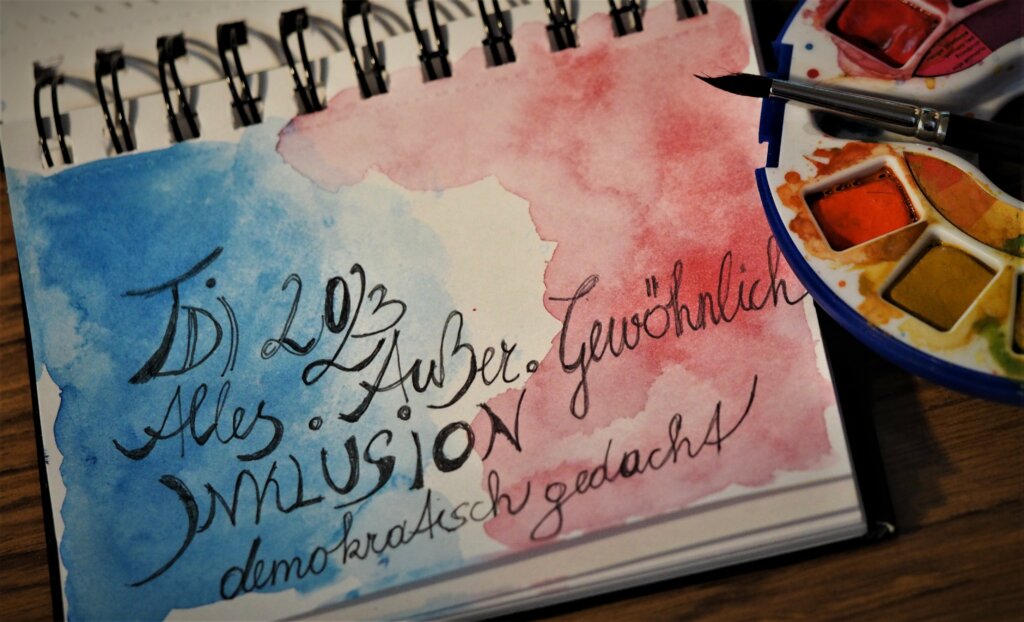 TDI 2023
Alles. Außer. Gewöhnlich
INKLUSION
demokratisch gedacht